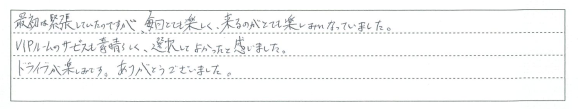 最初は緊張していたのですが、毎回とても楽しく、来るのがとても楽しみになっていました。
VIPルームのサービスも素晴らしく、選択してよかったと感じました。
ドライブが楽しみです。ありがとうございました。